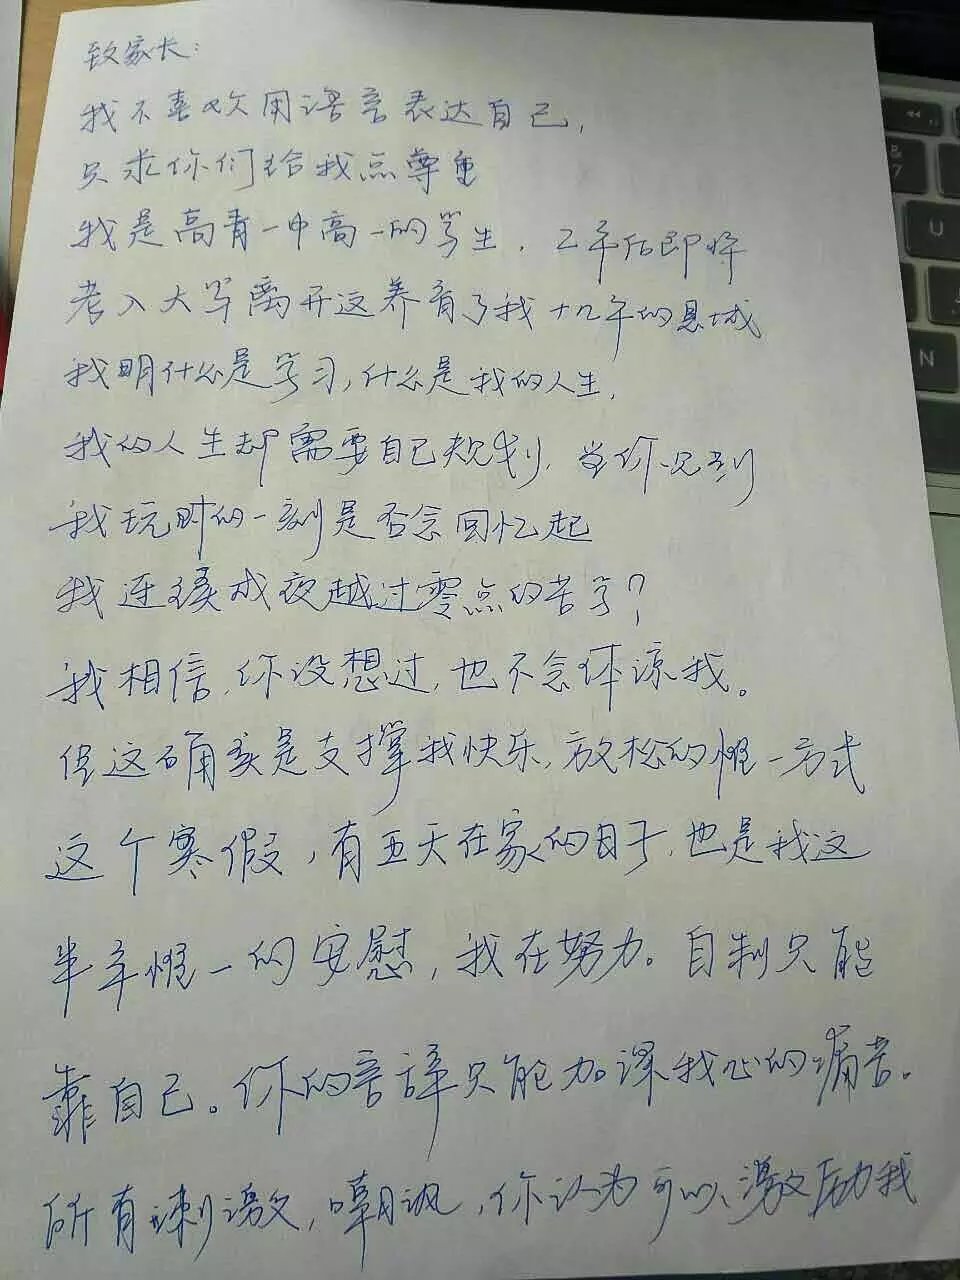 致家长:
我不喜欢用语言表达自己,
只求你们给我点尊重
我是高青一中高一的学生, 2年后即将
考入大学离开这养育了我十几年的县城
我明什么是学习,什么是我的人生.
我的人生却需要自己规划, 当你见到
我玩时的一刻是否会回忆起
我连续成夜越过零点的苦学?
我相信,你没想过,也不会体谅我。
但这确实是支撑我快乐,放松的惟一方式
这个寒假,有五天在家的日子,也是我这
半年惟一的安慰,我在努力。自制只能
靠自己。你的言辞只能加深我心的痛苦。
所有刺激,嘲讽,你认为可以激励我
U
N
&
7